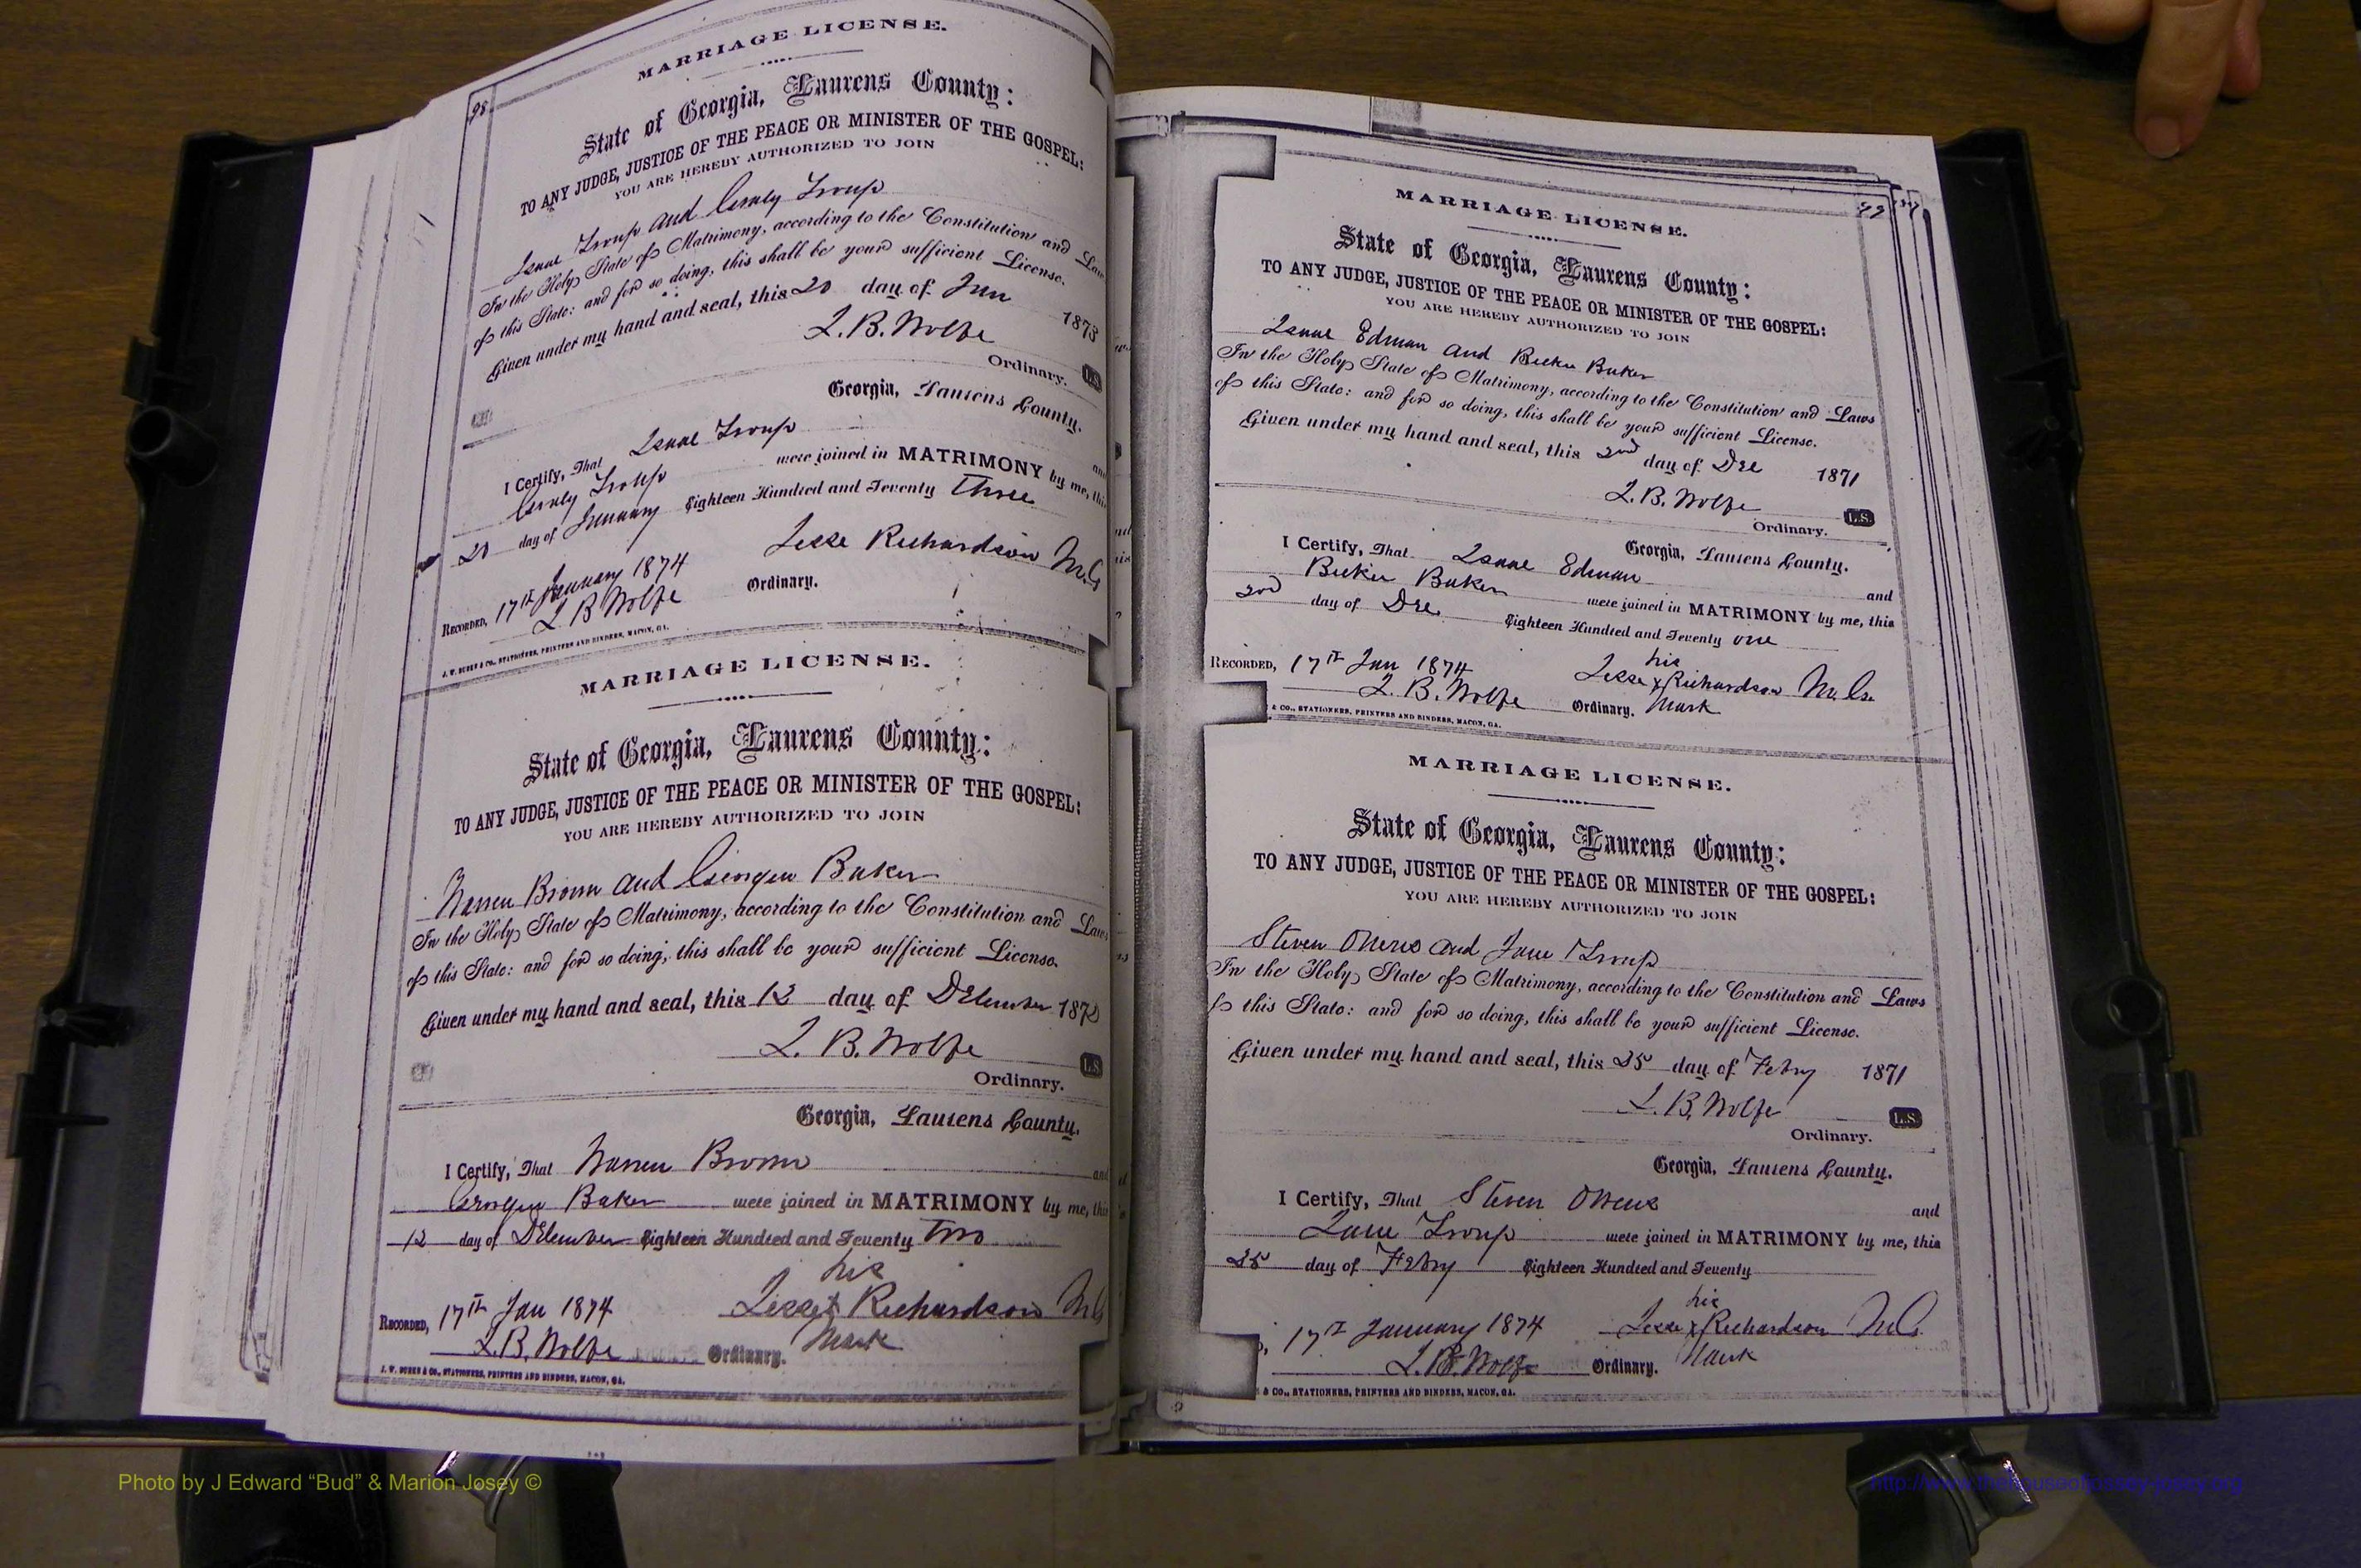 98
MARRIAGE LICENSE.
State of Georgia, Laurens County:
TO ANY JUDGE, JUSTICE OF THE PEACE OR MINISTER OF THE GOSPEL:
YOU ARE HEREBY AUTHORIZED TO JOIN
Isaac Troup and Troup
In the Holy State of Matrimony, according to the Constitution and Laws
of this State: and for so doing, this shall be your sufficient License.
Given under my hand and seal, this 20 day of Jan 1873
L. B. Wolfe
Ordinary. L.S.
Georgia, Laurens County.
I Certify, That Isaac Troup and
Troup were joined in MATRIMONY by me, this
20 day of January Eighteen Hundred and Seventy Three
Jesse Richardson M.G
RECORDED, 17th January 1874
L B Wolfe Ordinary.
J. W. BURKE & CO., STATIONERS, PRINTERS AND BINDERS, MACON, GA.
MARRIAGE LICENSE.
State of Georgia, Laurens County:
TO ANY JUDGE, JUSTICE OF THE PEACE OR MINISTER OF THE GOSPEL:
YOU ARE HEREBY AUTHORIZED TO JOIN
Warren Brown and Baker
In the Holy State of Matrimony, according to the Constitution and Laws
of this State: and for so doing, this shall be your sufficient License.
Given under my hand and seal, this 12 day of December 1872
L. B. Wolfe
L.S.
Ordinary.
Georgia, Laurens County.
I Certify, That Warren Brown and
Baker were joined in MATRIMONY by me, this
12 day of December Eighteen Hundred and Seventy Two
his
RECORDED, 17th Jan 1874 Jesse x Richardson M G
L. B. Wolfe Ordinary. Mark
J. W. BURKE & CO., STATIONERS, PRINTERS AND BINDERS, MACON, GA.
99
MARRIAGE LICENSE.
State of Georgia, Laurens County:
TO ANY JUDGE, JUSTICE OF THE PEACE OR MINISTER OF THE GOSPEL:
YOU ARE HEREBY AUTHORIZED TO JOIN
Isaac Edman and Baker
In the Holy State of Matrimony, according to the Constitution and Laws
of this State: and for so doing, this shall be your sufficient License.
Given under my hand and seal, this 2nd day of Dec 1871
L. B. Wolfe
Ordinary. L.S.
Georgia, Laurens County.
I Certify, That Isaac Edman and
Baker were joined in MATRIMONY by me, this
2nd day of Dec Eighteen Hundred and Seventy one
his
RECORDED, 17th Jan 1874 Jesse x Richardson M. G.
L. B. Wolfe Ordinary. Mark
& CO., STATIONERS, PRINTERS AND BINDERS, MACON, GA.
MARRIAGE LICENSE.
State of Georgia, Laurens County:
TO ANY JUDGE, JUSTICE OF THE PEACE OR MINISTER OF THE GOSPEL:
YOU ARE HEREBY AUTHORIZED TO JOIN
Steven Owens and Jane Troup
In the Holy State of Matrimony, according to the Constitution and Laws
of this State: and for so doing, this shall be your sufficient License.
Given under my hand and seal, this 25 day of Febry 1871
L. B. Wolfe
L.S.
Ordinary.
Georgia, Laurens County.
I Certify, That Steven Owens and
Jane Troup were joined in MATRIMONY by me, this
25 day of Febry Eighteen Hundred and Seventy
his
17th January 1874 Jesse x Richardson M.G.
L. B. Wolfe Ordinary. Mark
& CO., STATIONERS, PRINTERS AND BINDERS, MACON, GA.
Photo by J Edward “Bud” & Marion Josey ©
http://www.thehouseofjossey-josey.org